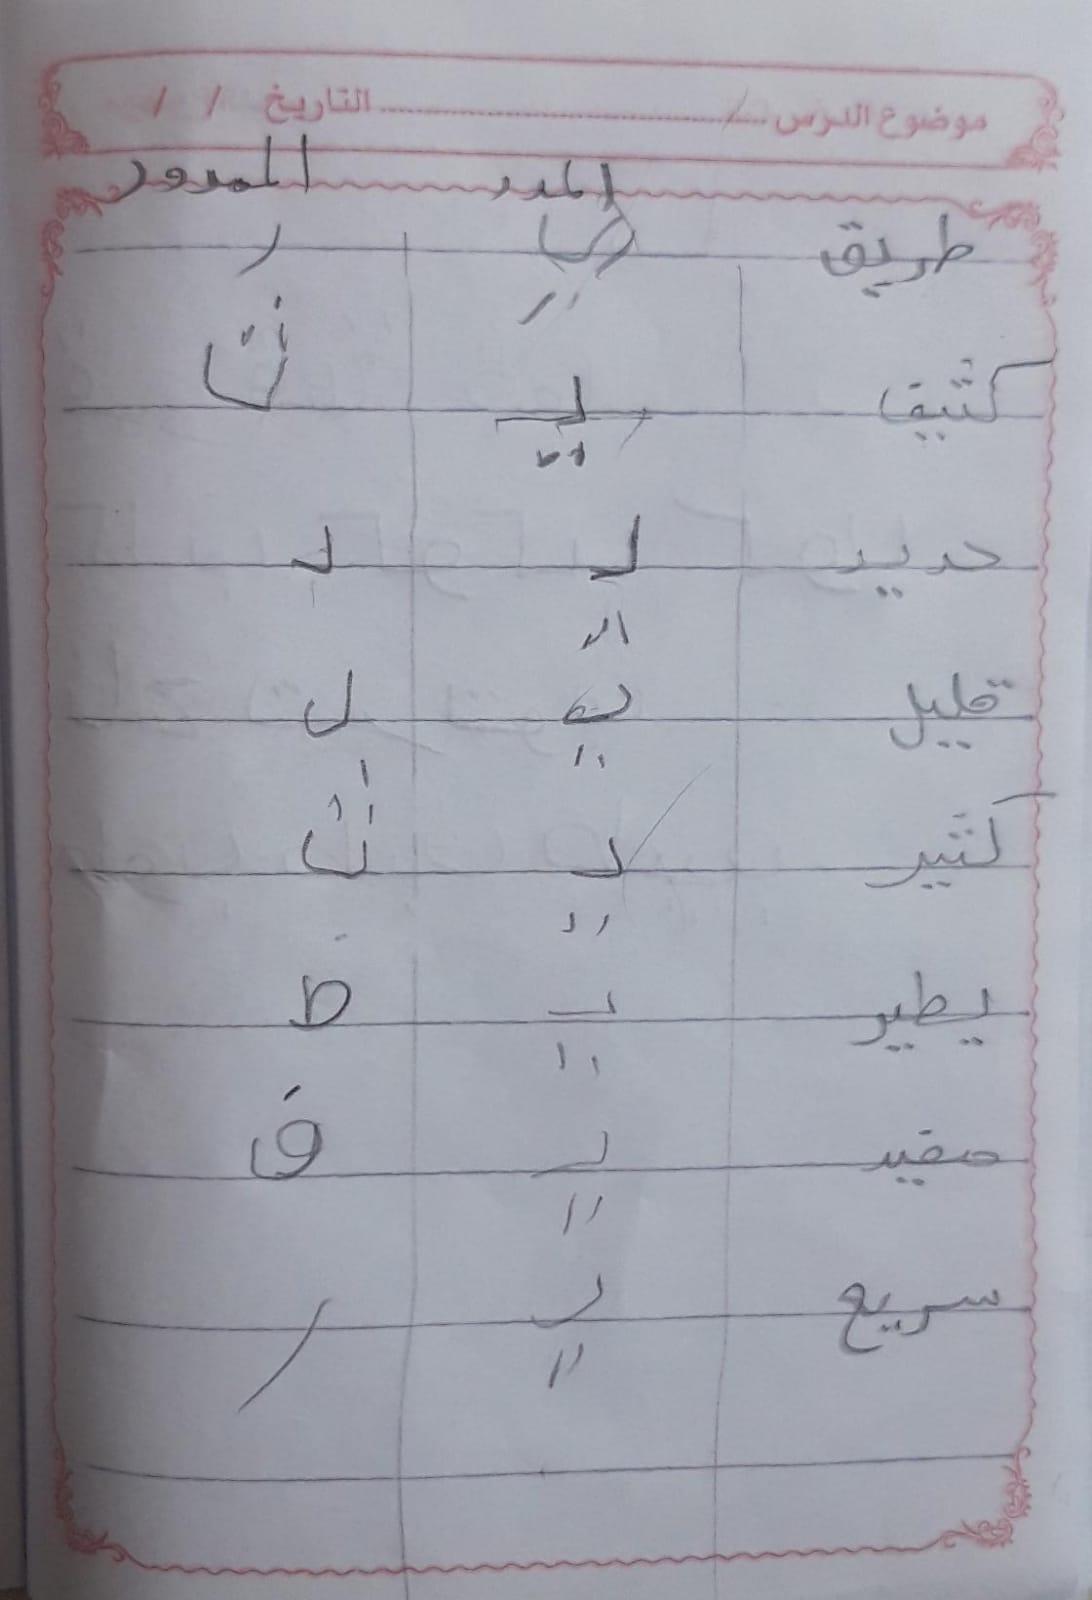 موضوع الدرس ........ التاريخ / /
المد الممدود
طريق يـ ر
كثيف يـ ث
حديد يـ د
قليل يـ ل
كثير يـ ث
يطير يـ ط
مفيد يـ ف
سريع يـ ر